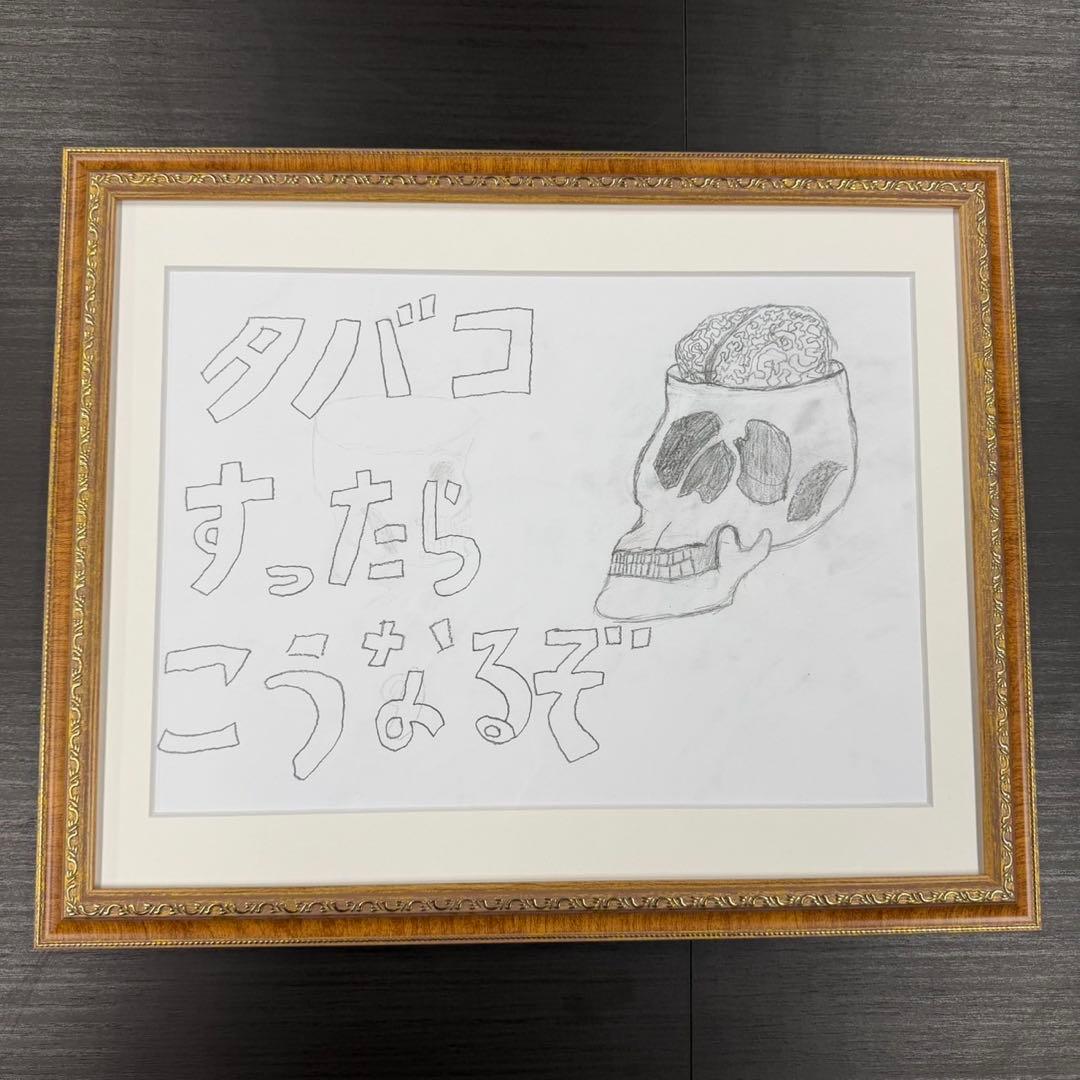 タバコ
すったら
こうなるぞ